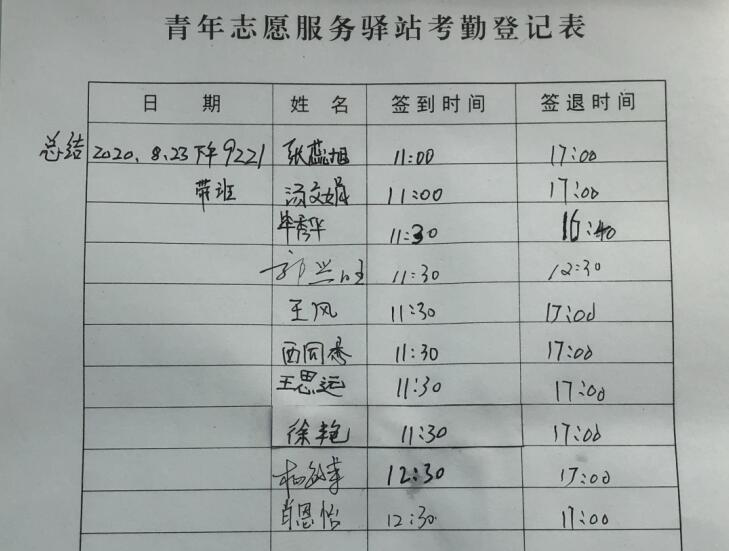 青年志愿服务驿站考勤登记表
日 期 姓 名 签到时间 签退时间
总结 2020.8.23下午9221 张蕊旭 11:00 17:00
带班 汤文娟 11:00 17:00
毕秀华 11:30 16:40
郭兴旺 11:30 12:30
王风 11:30 17:00
西同秀 11:30 17:00
王思远 11:30 17:00
徐艳 11:30 17:00
12:30 17:00
肖恩怡 12:30 17:00